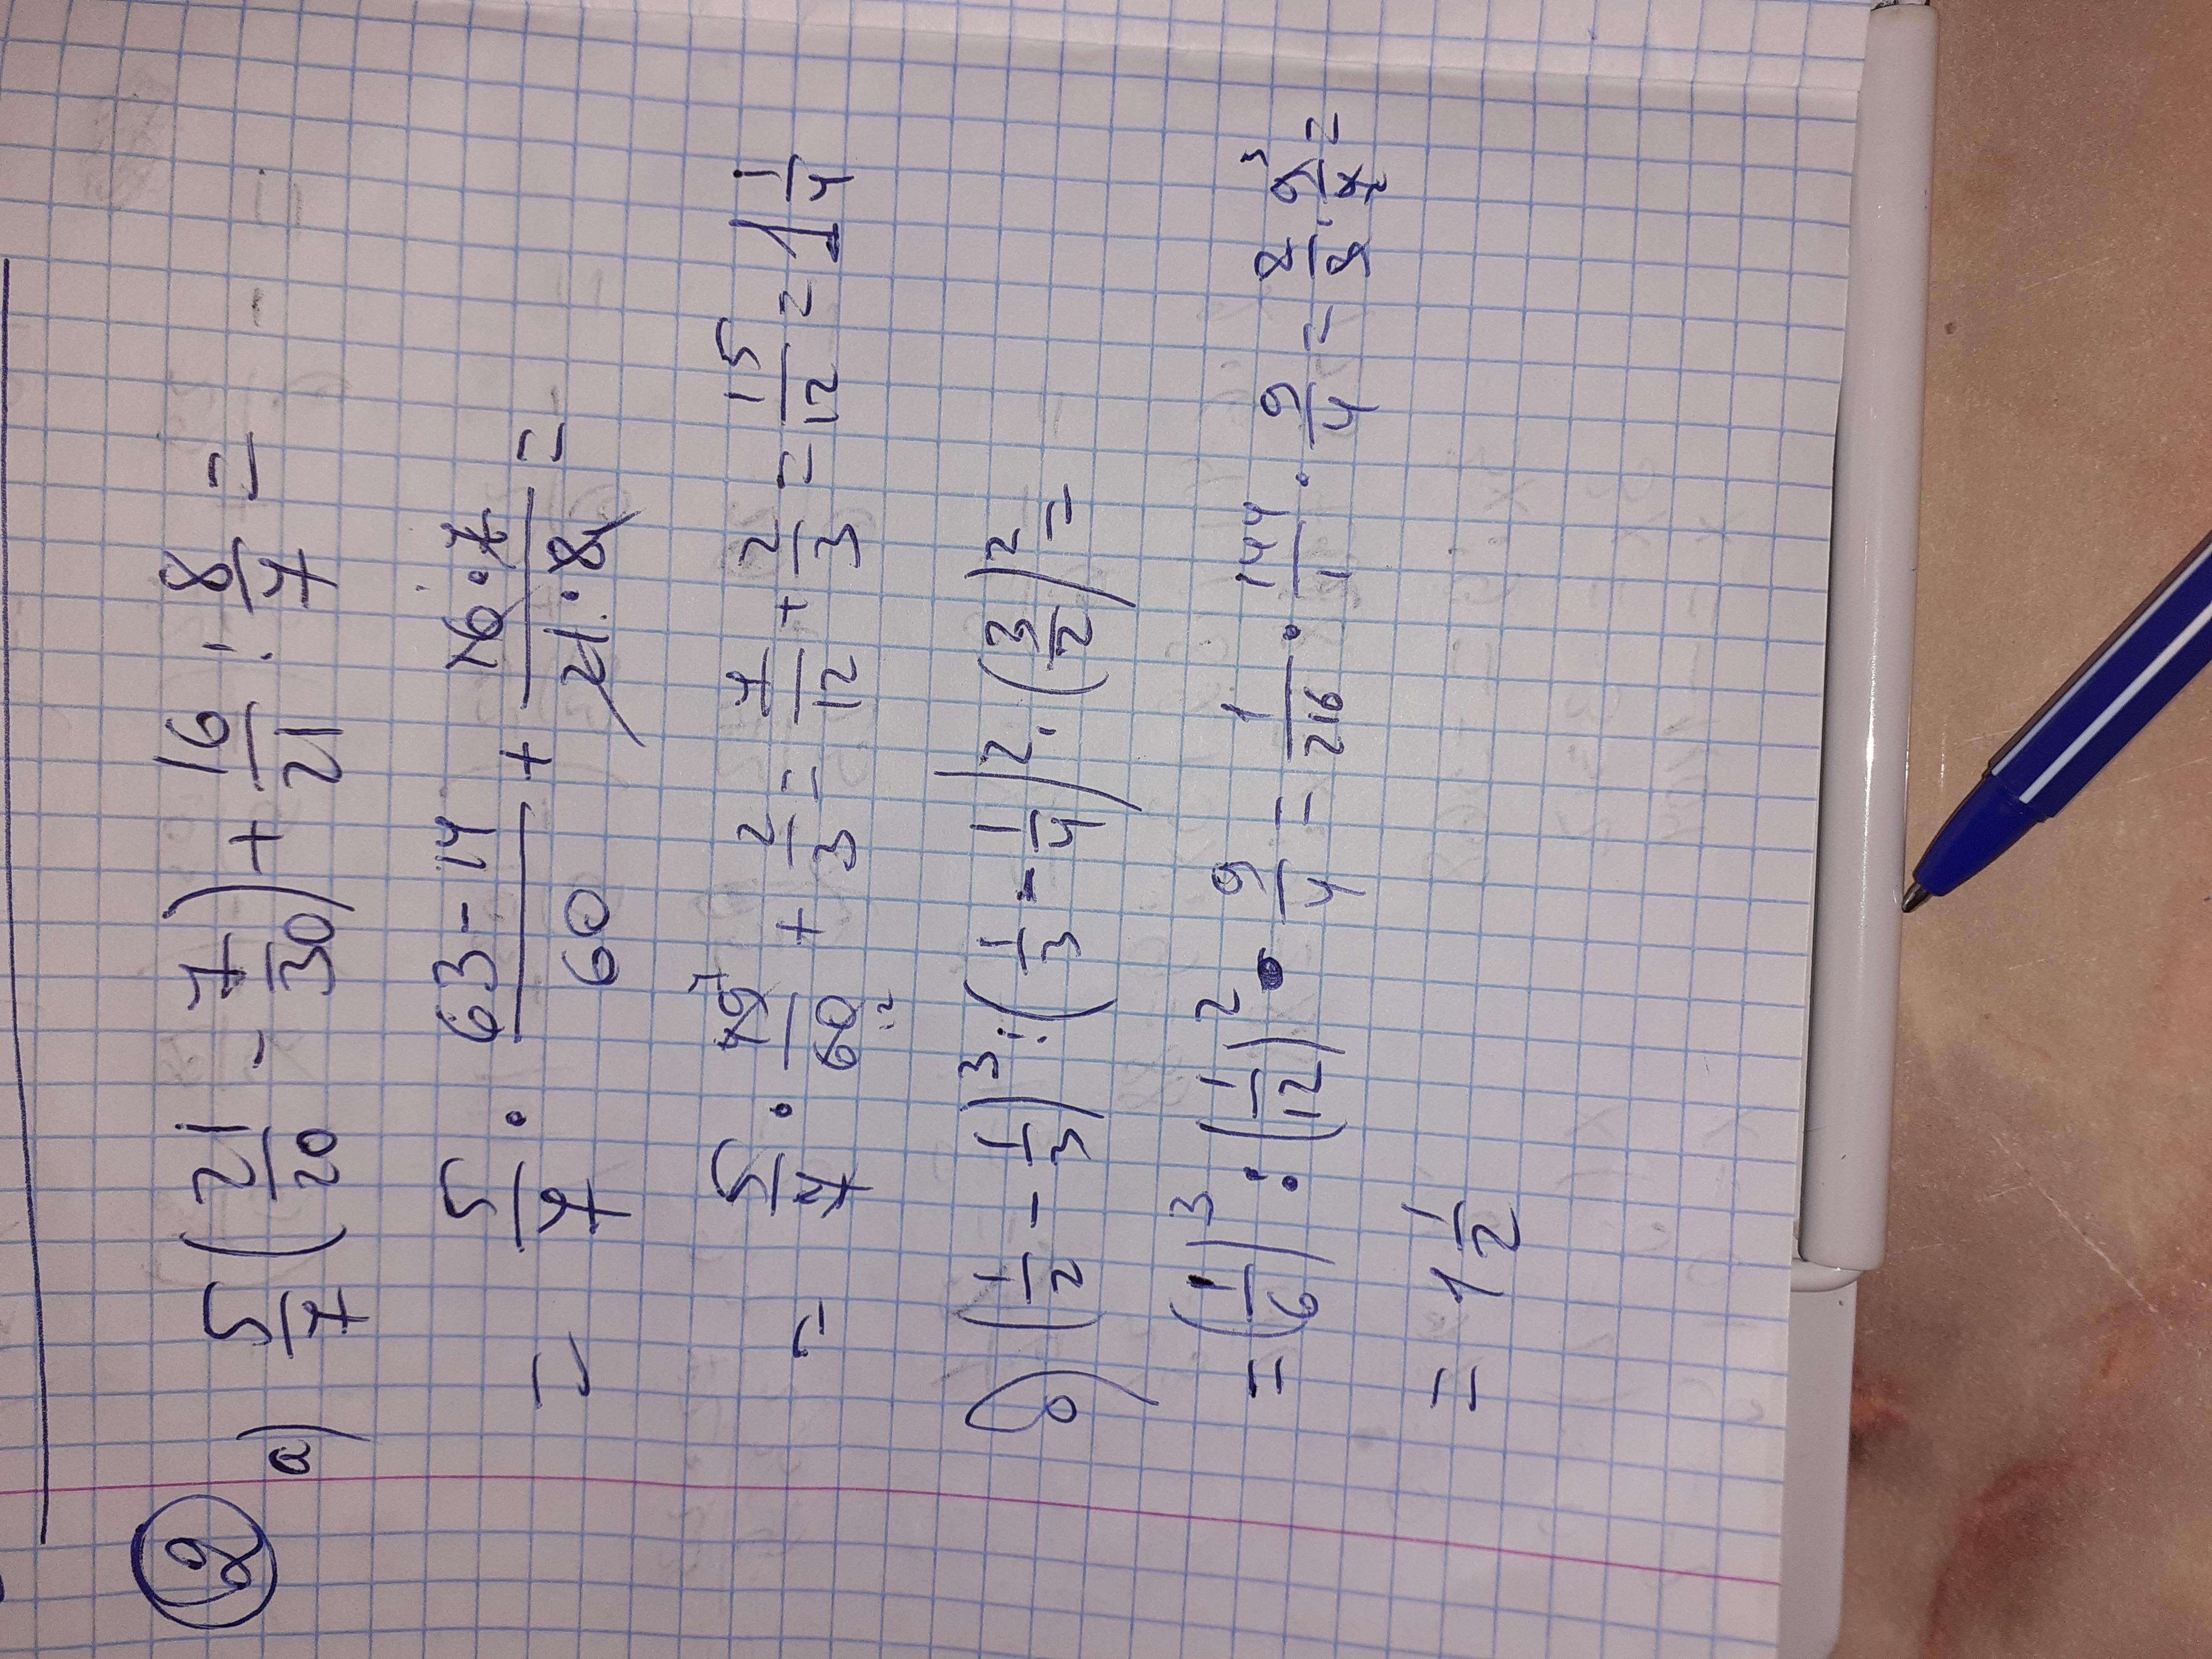 12
a) 5/7 (21/20 - 7/30) + 16/21 : 8/7 =
= 5/7 · (63-14)/60 + (16·7)/(21·8) =
= 5/7 · 49/60 + 2/3 = 7/12 + 2/3 = 15/12 = 1 1/4
б) (1/2 - 1/3)^3 : (1/3 - 1/4)^2 · (3/2)^2 =
= (1/6)^3 : (1/12)^2 · 9/4 = 1/216 · 144/1 · 9/4 =
= 1 1/2